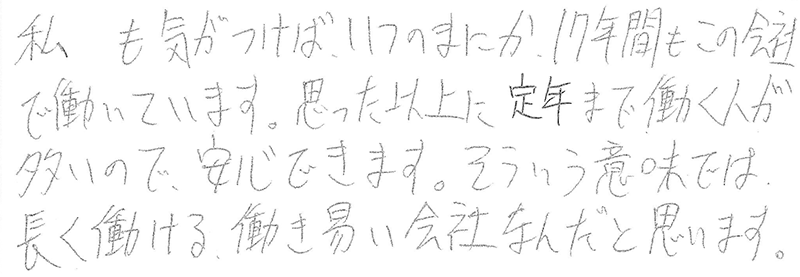 私　も気がつけば、いつのまにか、17年間もこの会社
で働いています。思った以上に定年まで働く人が
多いので、安心できます。そういう意味では、
長く働ける、働き易い会社なんだと思います。